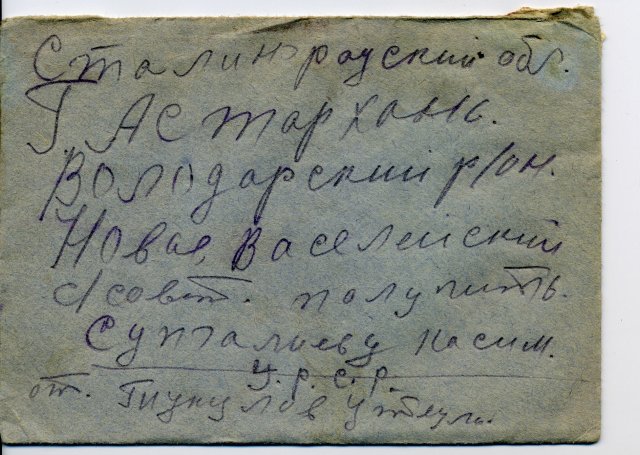 Сталинградский обл.
Г. Астархань.
Володарский р/он.
Новое, Васелейский
с/совт. получить.
Супталиеву Касим.
У.р.с.р.
от.